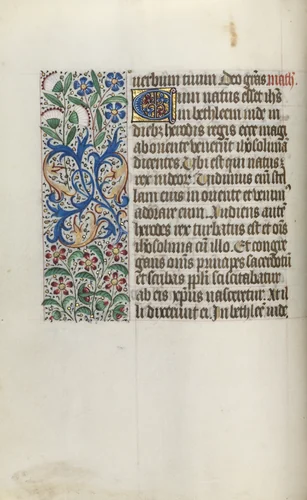 uerbum tuum Deo gras math.
Cum natus esset ihs
in bethleem iude in
dieb herodis regis ecce magi
ab oriente uenerunt iherosolima
dicentes. Ubi est qui natus
rex iudeor. Uidimus eni stel
lam eius in oriente et uenim
adorare eum. Audiens aute
herodes rex turbatus est et ois
iherosolima cu illo. Et congre
gans omis principes sacerdotu
et scribas ppli sciscitabatur
ab eis xpus nasceretur. At il
li dixerunt ei. In bethlee iude.